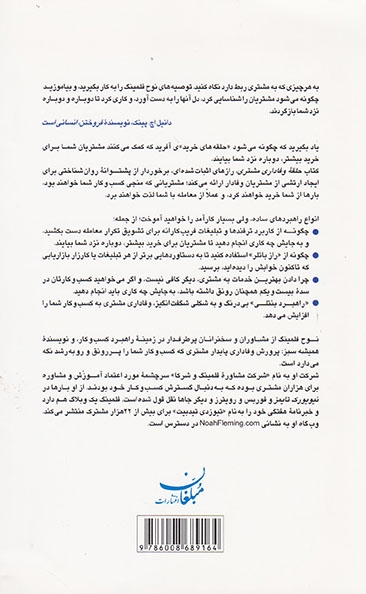 به هرچیزی که به مشتری ربط دارد نگاه کنید. توصیه‌های نوح فلمینگ را به کار بگیرید، و بیاموزید
چگونه می‌شود مشتریان را شناسایی کرد، دل آنها را به دست آورد، و کاری کرد تا دوباره و دوباره
نزد شما بازگردند.
دانیل اچ. پینک، نویسندهٔ فروختن، انسانی است
یاد بگیرید که چگونه می‌شود «حلقه‌های خرید»ی آفرید که کمک می‌کنند مشتریان شما برای
خرید بیشتر، دوباره نزد شما بیایند.
کتاب حلقهٔ وفاداری مشتری، رازهای اثبات شده‌ای، برخوردار از پشتوانهٔ روان‌شناختی برای
ایجاد ارتشی از مشتریان وفادار ارائه می‌کند؛ مشتریانی که منجی کسب‌وکار شما خواهند بود،
بارها از شما خرید خواهند کرد، و عملاً از معامله با شما لذت خواهند برد.
انواع راهبردهای ساده، ولی بسیار کارآمد را خواهید آموخت؛ از جمله:
چگونـه از کاربرد ترفندها و تبلیغات فریب‌کارانه برای تشویق تکرار معامله دست بکشید،
و به جایش چه کاری انجام دهید تا مشتریان برای خرید بیشتر، دوباره نزد شما بیایند.
چگونه از «راز باتلر» استفاده کنید تا به دستاوردهایی برتر از هر تبلیغات یا کارزار بازاریابی
که تاکنون خوابش را دیده‌اید، برسید.
چرا دادن بهترین خدمات به مشتری، دیگر کافی نیست، و اگر می‌خواهید کسب‌وکارتان در
سدهٔ بیست‌ویکم همچنان رونق داشته باشد، به جایش چه کاری باید انجام دهید.
«راهبرد بنتلی» بی‌درنگ و به شکلی شگفت‌انگیز، وفاداری مشتری به کسب‌وکار شما را
افزایش می‌دهد.
نوح فلمینگ از مشاوران و سخنرانان پرطرفدار در زمینهٔ راهبرد کسب‌وکار، و نویسندهٔ
همیشه سبز: پرورش وفاداری پایدار مشتری که کسب‌وکار شما را پررونق و رو به رشد نگه
می‌دارد است.
شرکت او به نام «شرکت مشاورهٔ فلمینگ و شرکا» سرچشمهٔ مورد اعتماد آموزش و مشاوره
برای هزاران مشتری بوده کـه به‌دنبال گسترش کسب‌وکار خود بودند. از او بارها در
نیویورک تایمز و فوربس و رویترز و دیگر جاها نقل قول شده است. فلمینگ یک وبلاگ هم دارد
و خبرنامهٔ هفتگی خود را به نام «تیوزدی تیدبیت» برای بیش از ۲۲هزار مشترک منتشر می‌کند.
وب‌گاه او به نشانی NoahFleming.com در دسترس است.
مبلغان
انتشارات
9 786008 689164